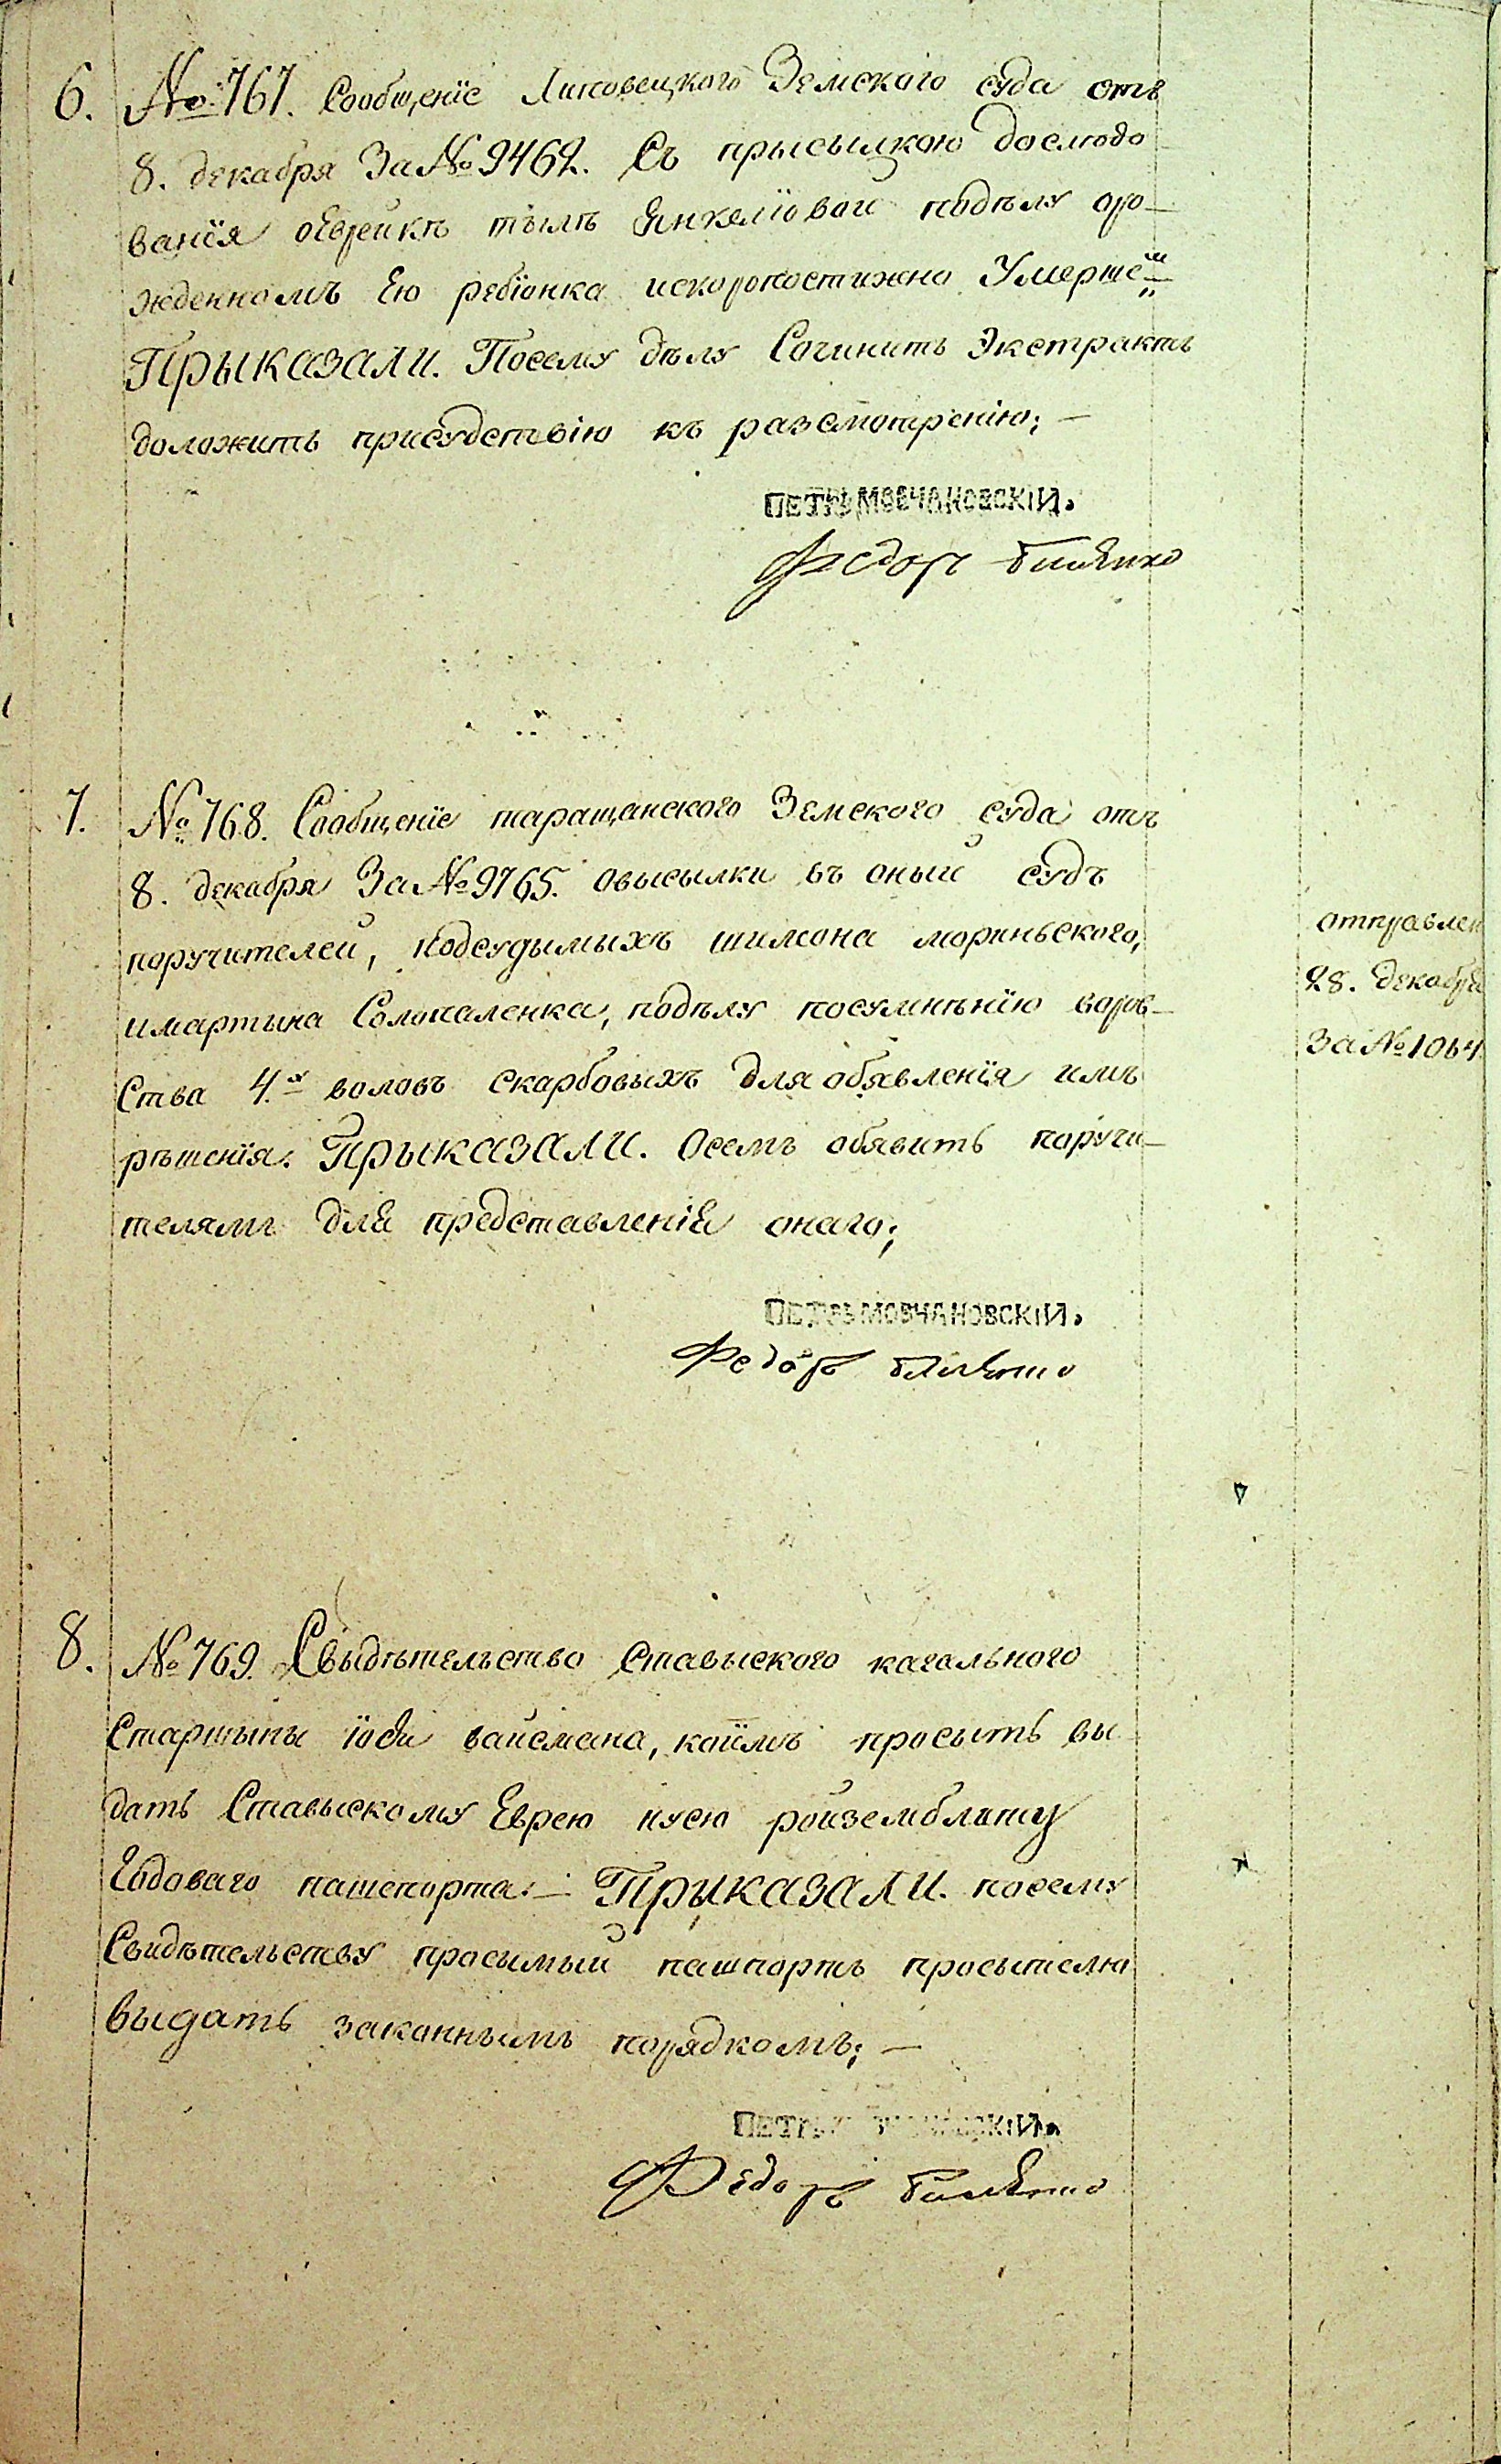 6. № 767. Сообщенїе Липовецкого Земского суда отъ
8. декабря За № 9462. Съ прысылкою дослѣдо
ванїя оеврейкѣ Янкелїовой подѣлу оро–
жденномъ Ею ребїонка искоропостижно Умерше–
ПРЫКАЗАЛИ. Посему дѣлу Сочинить Экстрактъ
доложить присудствію къ разсмотренію; —
ПЕТРЪ МОВЧАНОВСКІЙ.
Федоръ
7. № 768. Сообщенїе таращанского Земского суда отъ
8. декабря За № 9765. овысылки въ оный судъ
поручителей, подсудымыхъ шимона мориньского,
имартына Солопаленка, подѣлу посумнѣнїю воров–
Ства 4.х воловъ скарбовыхъ для обявленїя имъ
рѣшенїя. ПРЫКАЗАЛИ. Осемъ обявить поручи–
телямъ для представленія онаго;
отправлен
28. декабря
За № 1064
ПЕТРЪ МОВЧАНОВСКІЙ.
Федоръ
8. № 769. Свыдѣтельство Ставыского кагального
Старшыны вайсмана, коимъ просыть вы
дать Ставыскому Еврею нусю ройземблюту
Годоваго пашпорта: — ПРЫКАЗАЛИ. посему
Свидѣтельству просымый пашпортъ просытелю
выдать законнымъ порядкомъ; —
ПЕТРЪ МОВЧАНОВСКІЙ.
Федоръ